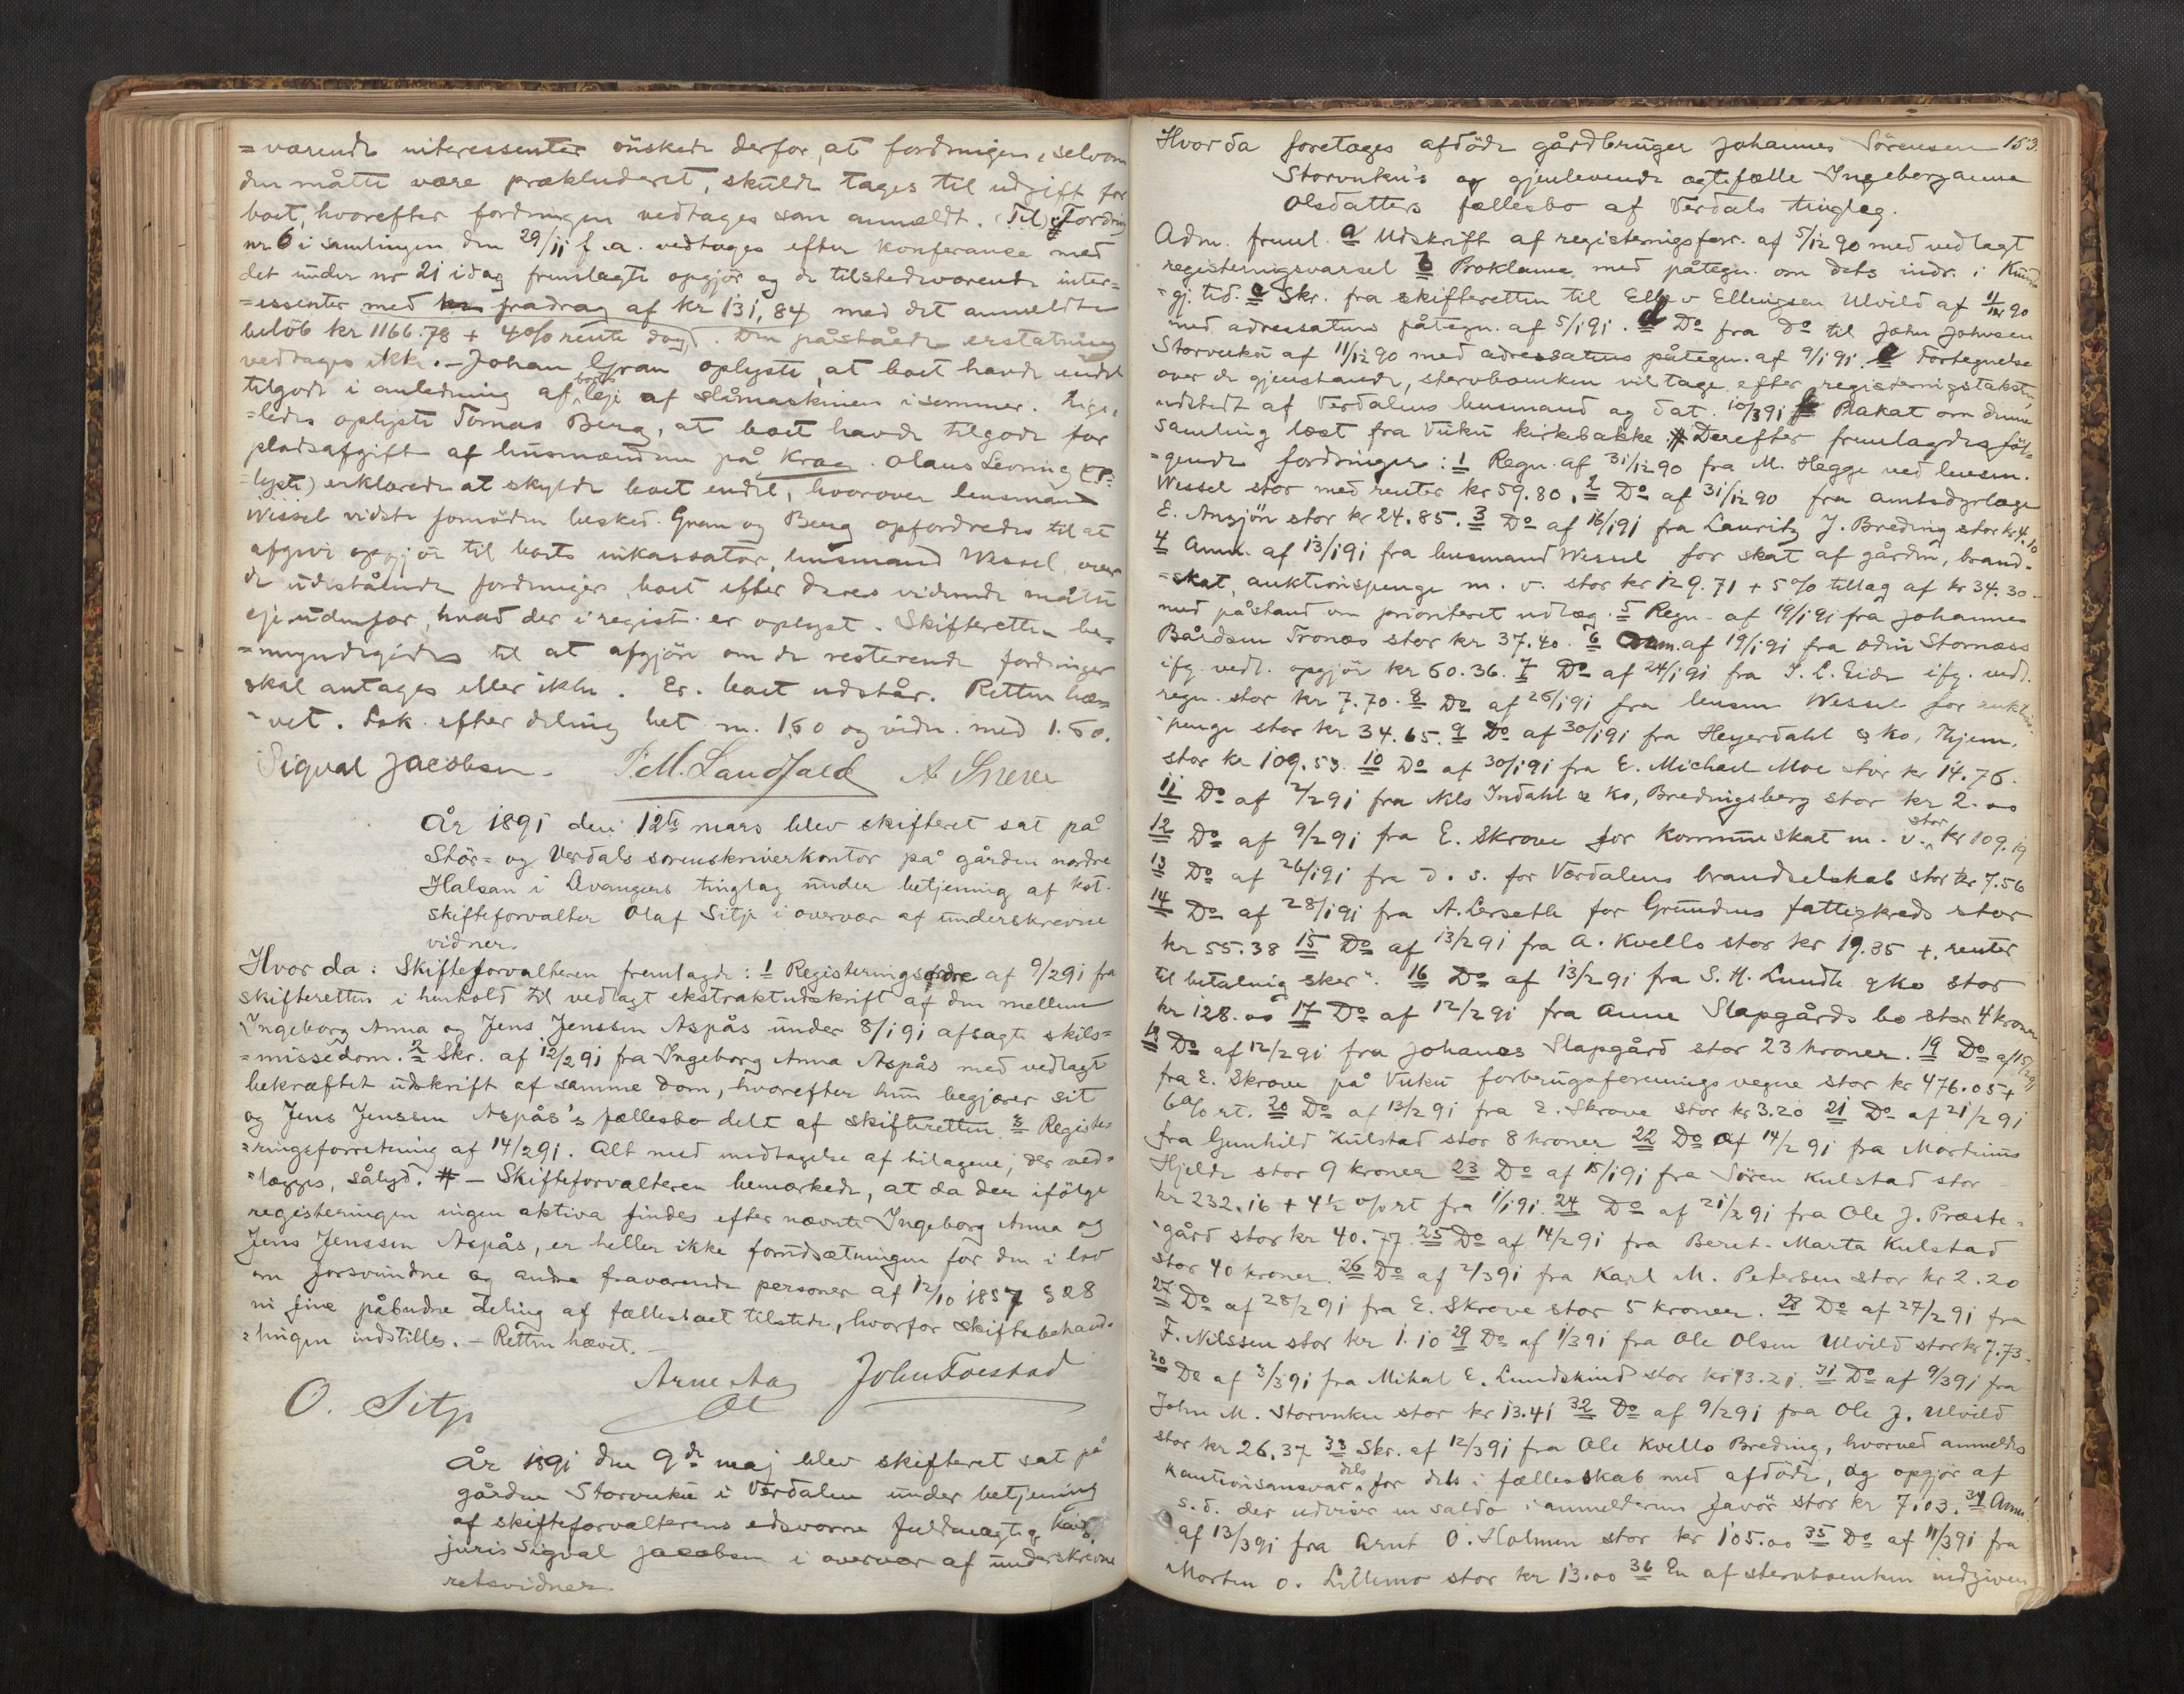 =værende interessenter önskede derfor, at fordringen, selvom
den måtte være prækluderet, skulde tages til udgift for
boet, hvorefter fordringen vedtages som anmeldt. (Til) Fordring
nr 6 i samlingen den 29/11 f. a. vedtages efter konferance med
det under nr 21 idag fremlagte opgjör og de tilstedeværende inter=
=essenter med fradrag af kr 131,84 med det anmeldte
belöb kr 1166.78 + 4% rente dog. Den påståede erstatning
vedtages ikke. - Johan Gran oplyste, at boet havde endel
tilgode i anledning af boets leje af slåmaskinen i sommer. Lige=
=ledes oplyste Tomas Berg, at boet havde tilgode for
pladsafgift af husmændene på Krag. Olaus Levring (op=
=lyste) erklærede at skylde boet endel, hvorover lensmand
Wessel vidste fornöden besked. Gran og Berg opfordredes til at
afgive opgjör til boets inkassator, lensmand Wessel, over
de udestående fordringer, boet efter deres vidende måtte
eje udenfor, hvad der i regist. er oplyst. Skifteretten be=
=myndigedes til at afgjöre om de resterende fordringer
skal antages eller ikke. Er. boet udstår. Retten hæ=
=vet. Lok. efter deling bet m. 1.60 og vidn. med 1.60.
Sigval Jacobsen. P. M. Landfald A Sneve
År 1891 den 12te mars blev skifteret sat på
Stör= og Verdals sorenskriverkontor på gården nordre
Halsan i Levangers tinglag under betjening af kst.
skifteforvalter Olaf Sitje i overvær af underskrevne
vidner.
Hvor da: Skifteforvalteren fremlagde: 1 Registeringsordre af 9/2 91 fra
skifteretten i henhold til vedlagt ekstraktudskrift af den mellem
Ingeborg Anna og Jens Jenssen Aspås under 8/1 91 afsagte skils=
=missedom. 2 Skr. af 12/2 91 fra Ingeborg Anna Aspås med vedlagt
bekræftet udskrift af samme dom, hvorefter hun begjærer sit
og Jens Jenssen Aspås's fællesbo delt af skifteretten. 3 Registe=
=ringsforretning af 14/2 91. Alt med undtagelse af bilagene, der ved=
=lægges, sålyd. # - Skifteforvalteren bemærkede, at da der ifölge
registeringen ingen aktiva findes efter nævnte Ingeborg Anna og
Jens Jenssen Aspås, er heller ikke forudsætningen for den i lov
om forsvundne og andre fraværende personer af 12/10 1857 § 28
in fine påbudne deling af fællesboet tilstede, hvorfor skiftebehand=
=lingen indstilles. - Retten hævet. -
Arne Aag John Forstad
O. Sitje
År 1891 den 9de maj blev skifteret sat på
gården Storvuku i Verdalen under betjening
af skifteforvalterens edsvorne fuldmægtig kand.
juris Sigval Jacobsen i overvær af underskrevne
retsvidner.
Hvor da foretages afdöde gårdbruger Johannes Sörensen 153.
Storvuku's og gjenlevende ægtefælle Ingeborganna
Olsdatters fællesbo af Verdals tinglag.
Adm. freml. a Udskrift af registeringsforr. af 5/12 90 med vedlagt
registeringsvarsel b Proklama med påtegn. om dets indr. i Kund=
=gj. tid. c Skr. fra skifteretten til Elle. v Ellingsen Ulvild af 11/12 90
med adressatens påtegn. af 5/1 91. d Do fra do til John Johnsen
Storvuku af 11/12 90 med adressatens påtegn. af 9/1 91. e Fortegnelse
over de gjenstande, stervboenken vil tage efter registeringstakst,
udstedt af Verdalens lensmand og dat. 10/3 91 f Plakat om denne
samling læst fra Vuku kirkebakke. # Derefter fremlagdes föl=
=gende fordringer: 1 Regn. af 31/12 90 fra M. Hegge ved lensm.
Wessel stor med renter kr 59.80. 2 Do af 31/12 90 fra amtsdyrlæge
E. Ansjön stor kr 24.85. 3 Do af 16/1 91 fra Lauritz J. Breding stor kr 4.10
4 Anm. af 13/1 91 fra lensmand Wessel for skat af gården, brand=
=skat, auktionspenge m. v. stor kr 129.71 + 5% tillæg af kr 34.30
med påstand om prioriteret udlæg. 5 Regn. af 19/1 91 fra Johannes
Bårdsen Tronæs stor kr 37.40. 6 Anm. af 19/1 91 fra Odin Stornæss
ifg. vedl. opgjör kr 60.36. 7 Do af 24/1 91 fra I. C. Eide ifg. vedl.
regn. stor kr 7.70. 8 Do af 26/1 91 fra lensm Wessel for auktions=
=penge stor kr 34.65. 9 Do af 30/1 91 fra Heyerdahl & Ko, Thjem.
stor kr 109.53. 10 Do af 30/1 91 fra E. Michael Moe stor kr 14.76.
11 Do af 2/2 91 fra Nils Indahl & Ko, Bredingsberg stor kr 2.00
12 Do af 9/2 91 fra E. Skrove for kommuneskat m. v. stor kr 109.19
13 Do af 26/1 91 fra d. s. for Værdalens brandselskab stor kr 7.56
14 Do af 28/1 91 fra A. Lerseth for Grundens fattigkreds stor
kr 55.38 15 Do af 13/2 91 fra A. Kvello stor kr 19.85 +. renter
til betalning sker". 16 Do af 13/2 91 fra S. H. Lundh & Ko stor
kr 128.00 17 Do af 12/2 91 fra Anne Slapgårds bo stor 4 kroner
18 Do af 12/2 91 fra Johanes Slapgård stor 23 kroner. 19 Do af 15/2 91
fra E. Skrove på Vuku forbrugsforenings vegne stor kr 476.05 +
6% rt. 20 Do af 13/2 91 fra E. Skrove stor kr 3.20 21 Do af 21/2 91
fra Gunhild Kulstad stor 8 kroner 22 Do af 14/2 91 fra Martinus
Hjelde stor 9 kroner 23 Do af 15/1 91 fra Sören Kulstad stor
kr 232.16 + 4½ % rt fra 1/1 91. 24 Do af 21/2 91 fra Ole J. Præste=
=gård stor kr 40.77. 25 Do af 14/2 91 fra Beret-Marta Kulstad
stor 40 kroner. 26 Do af 2/3 91 fra Karl M. Petersen stor kr 2.20
27 Do af 28/2 91 fra E. Skrove stor 5 kroner. 28 Do af 27/2 91 fra
F. Nilssen stor kr 1.10 29 Do af 1/3 91 fra Ole Olsen Ulvild stor kr 7.73.
30 Do af 3/3 91 fra Mikal E. Lundskind stor kr 93.21. 31 Do af 9/3 91 fra
John M. Storvuku stor kr 13.41 32 Do af 9/2 91 fra Ole J. Ulvild
stor kr 26.37 33 Skr. af 12/3 91 fra Ole Kvello Breding, hvorved anmeldes
kautionsansvar dels for dels i fællesskab med afdöde, og opgjör af
s. d. der udviser en saldo i anmelderens favör stor kr 7.03. 34 Anm.
af 13/3 91 fra Arnt O. Holmen stor kr 105.00 35 Do af 11/3 91 fra
Morten O. Lillemo stor kr 13.00 36 En af stervboenken indgiven